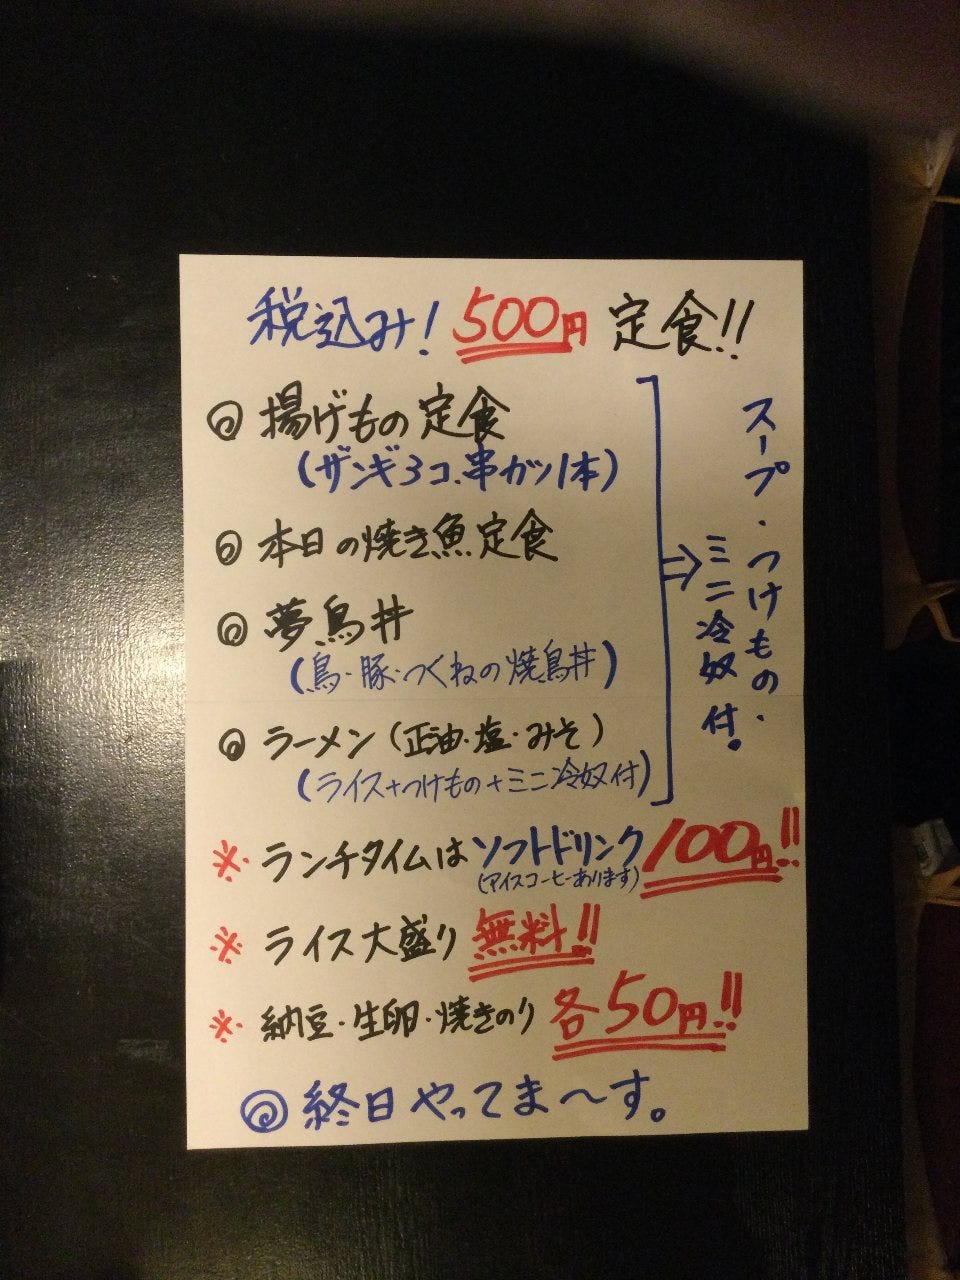 税込み! 500円 定食!!
◎ 揚げもの定食
(ザンギ3コ、串カツ1本)
◎ 本日の焼き魚定食
◎ 夢鳥丼
(鳥・豚・つくねの焼鳥丼)
◎ ラーメン(正油・塩・みそ)
(ライス+つけもの+ミニ冷奴付)
⇒ スープ・つけもの・
ミニ冷奴付。
※ ランチタイムはソフトドリンク100円!!
(アイスコーヒーあります)
※ ライス大盛り 無料!!
※ 納豆・生卵・焼きのり 各50円!!
◎ 終日やってま〜す。